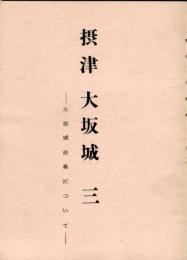 摂津 大坂城 三
―大坂城について―